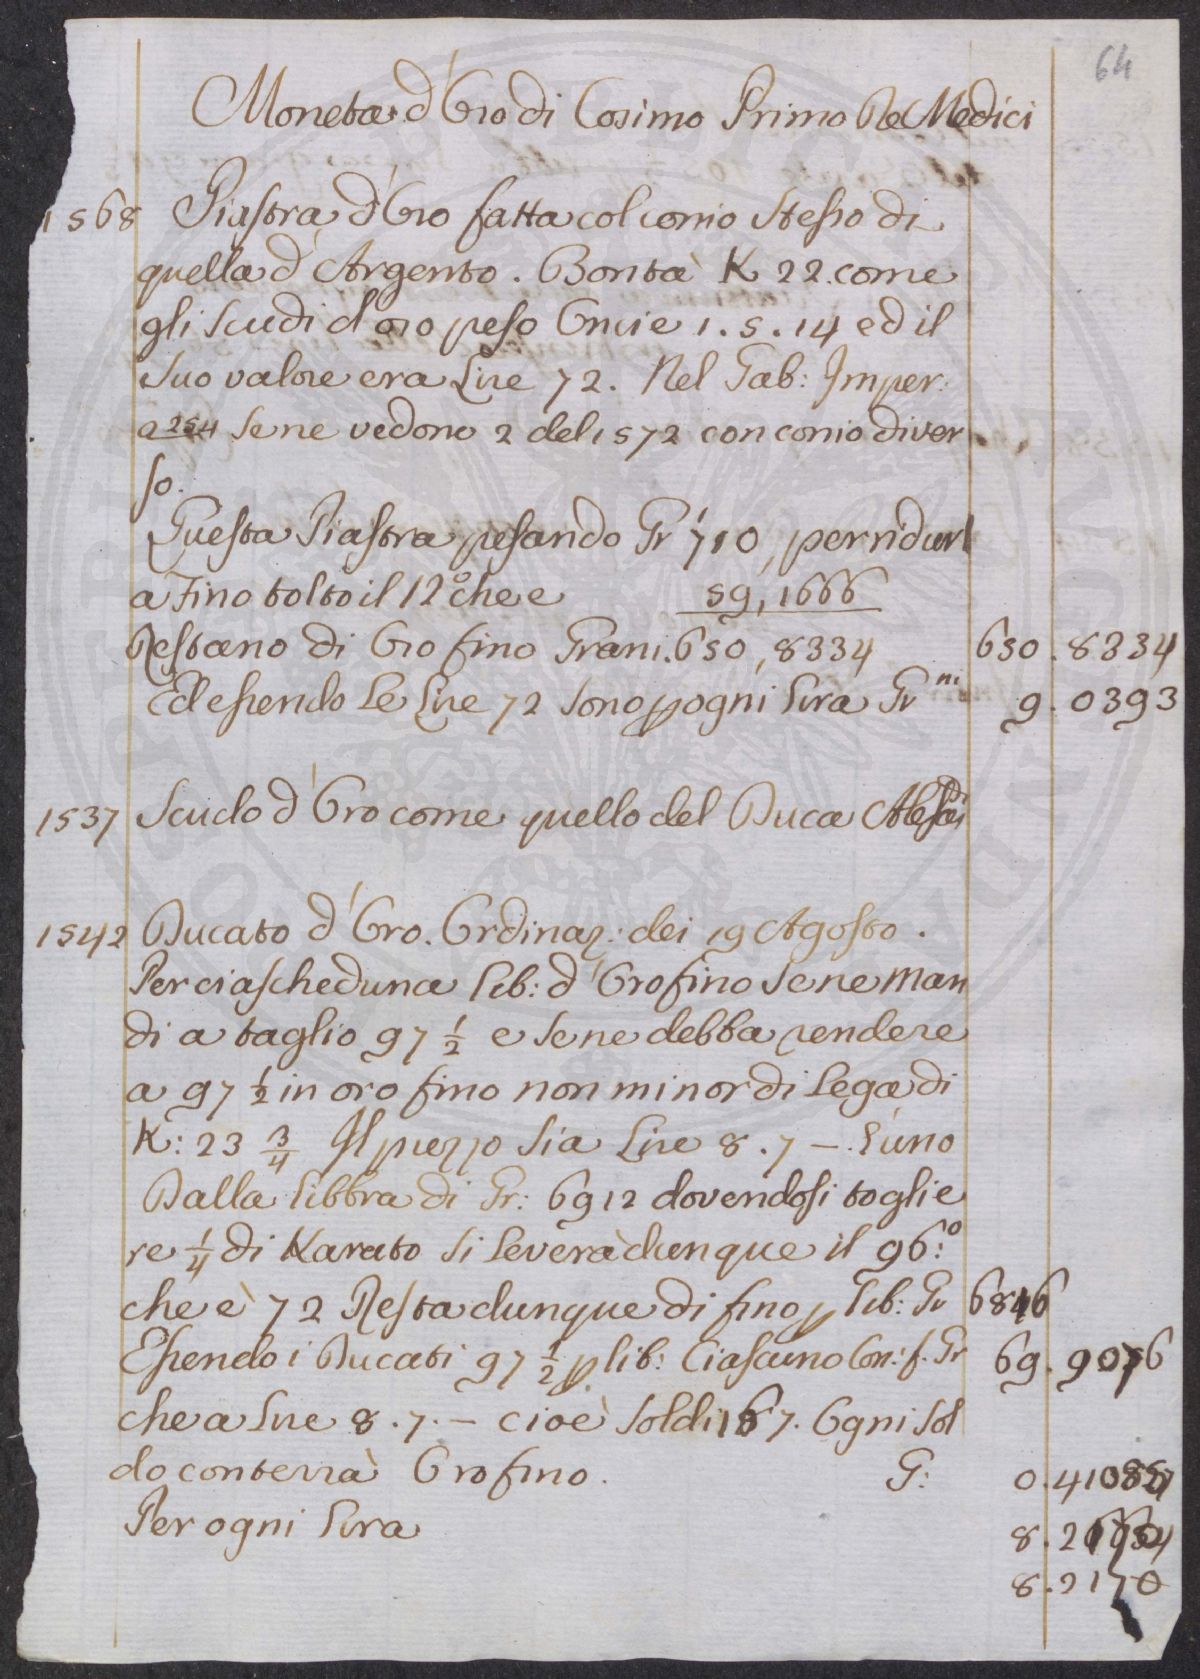 64
Moneta d'Oro di Cosimo Primo De Medici
1568 Piastra d'Oro fatta col conio stesso di
quella d'Argento. Bontà K 22. come
gli scudi d'oro peso Oncie 1.5.14 ed il
suo valore era Lire 72. Nel Gab: Imper:
a 254 se ne vedono 2 del 1572 con conio diver
so.
Questa Piastra pesando Gr 710, per ridurl
a Fino tolto il 12.º che e 59,1666
Restano di Oro fino Grani. 650,8334 650.8334
Ed essendo le Lire 72 sono p ogni Lira Gr ni 9.0393
1537 Scudo d'Oro come quello del Duca Aless di
1542 Ducato d'Oro. Ordinaz: dei 19 Agosto.
Per ciascheduna lib: d'Oro fino se ne man
di a taglio 97 1/2 e se ne debba rendere
a 97 1/2 in oro fino non minor di lega di
K: 23 3/4 Il prezzo sia Lire 8.7 — l'uno
Dalla libbra di Gr: 6912 dovendosi toglie
re 1/4 di Karato si leverà dunque il 96:º
che è 72 Resta dunque di fino p lib: Gr 6840
Essendo i Ducati 97 1/2 p lib: Ciascuno Con: f. Gr 69.
che a Lire 8.7.— cioè soldi 167. Ogni sol
do conterrà Oro fino. G: 0.
Per ogni Lira 8.
8.2170